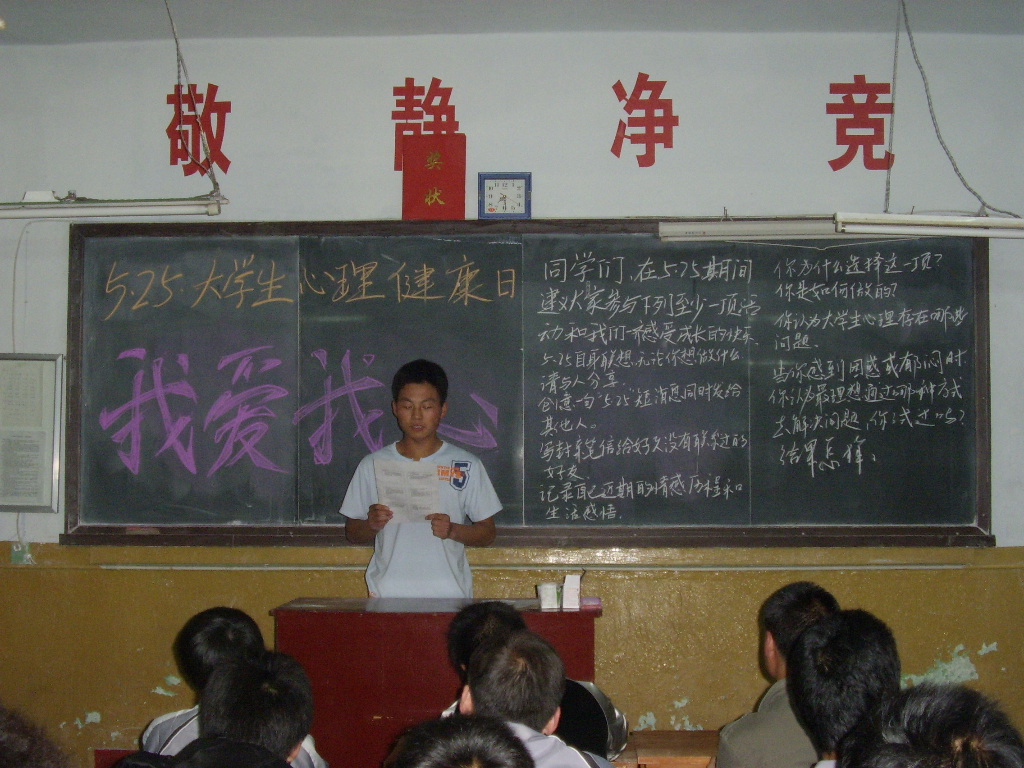 敬 静 净 竞
奖
状
5.25.大学生心理健康日
我爱我
同学们,在5.25期间
建议大家参与下列至少一项活
动和我们一起感受成长的快乐
5.25自身联想,无论你想做什么
请与人分享.
创意一句"5.25"短消息同时发给
其他人.
写封亲笔信给好久没有联系过的
好友
记录自己近期的情感历程和
生活感悟.
你为什么选择这一项?
你是如何做的?
你认为大学生心理存在哪些
问题.
当你感到困惑或郁闷时
你认为最理想通过哪一种方式
去解决问题,你试过吗?
结果怎样.
5